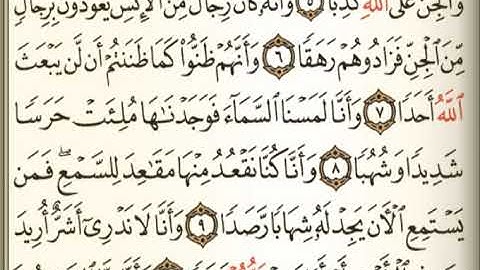 وَٱلۡجِنُّ عَلَى ٱللَّهِ كَذِبٗا ٥ وَأَنَّهُۥ كَانَ رِجَالٞ مِّنَ ٱلۡإِنسِ يَعُوذُونَ بِرِجَالٖ
مِّنَ ٱلۡجِنِّ فَزَادُوهُمۡ رَهَقٗا ٦ وَأَنَّهُمۡ ظَنُّواْ كَمَا ظَنَنتُمۡ أَن لَّن يَبۡعَثَ
ٱللَّهُ أَحَدٗا ٧ وَأَنَّا لَمَسۡنَا ٱلسَّمَآءَ فَوَجَدۡنَٰهَا مُلِئَتۡ حَرَسٗا
شَدِيدٗا وَشُهُبٗا ٨ وَأَنَّا كُنَّا نَقۡعُدُ مِنۡهَا مَقَٰعِدَ لِلسَّمۡعِۖ فَمَن
يَسۡتَمِعِ ٱلۡأٓنَ يَجِدۡ لَهُۥ شِهَابٗا رَّصَدٗا ٩ وَأَنَّا لَا نَدۡرِيٓ أَشَرٌّ أُرِيدَ